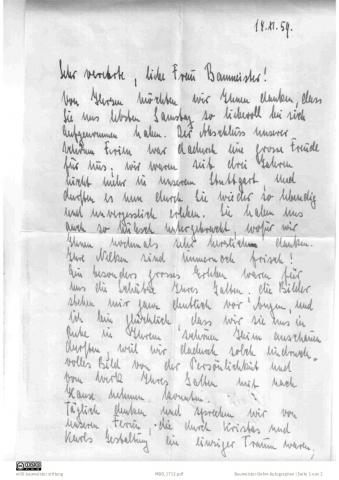 14.XI.59.
Sehr verehrte, liebe Frau Baumeister!
Von Herzen möchten wir Ihnen danken, dass
Sie uns letzten Samstag so liebevoll bei sich
aufgenommen haben. Der Abschluss unserer
schönen Ferien war dadurch eine grosse Freude
für uns; wir waren seit drei Jahren
nicht mehr in unserem Stuttgart und
durften es nun durch Sie wieder so lebendig
und unvergesslich erleben. Sie haben uns
auch so hübsch untergebracht, wofür wir
Ihnen nochmals sehr herzlich danken.
Ihre Nelken sind immer noch frisch!
Ein besonders grosses Erleben waren für
uns die Schätze Ihres Gatten. Die Bilder
stehen mir ganz deutlich vor Augen, und
ich bin glücklich, dass wir sie uns in
Ruhe in Ihrem schönen Heim anschauen
durften, weil wir dadurch solch eindrucks-
volles Bild von der Persönlichkeit und
vom Werk Ihres Gatten mit nach
Hause nehmen konnten.
Täglich denken und sprechen wir von
unseren Ferien, die durch Kristas und
Karls Gestaltung ein einziger Traum waren,
willi baumeister stiftung
MBO_1712.pdf
Baumeister-Online Autographen | Seite 1 von 2